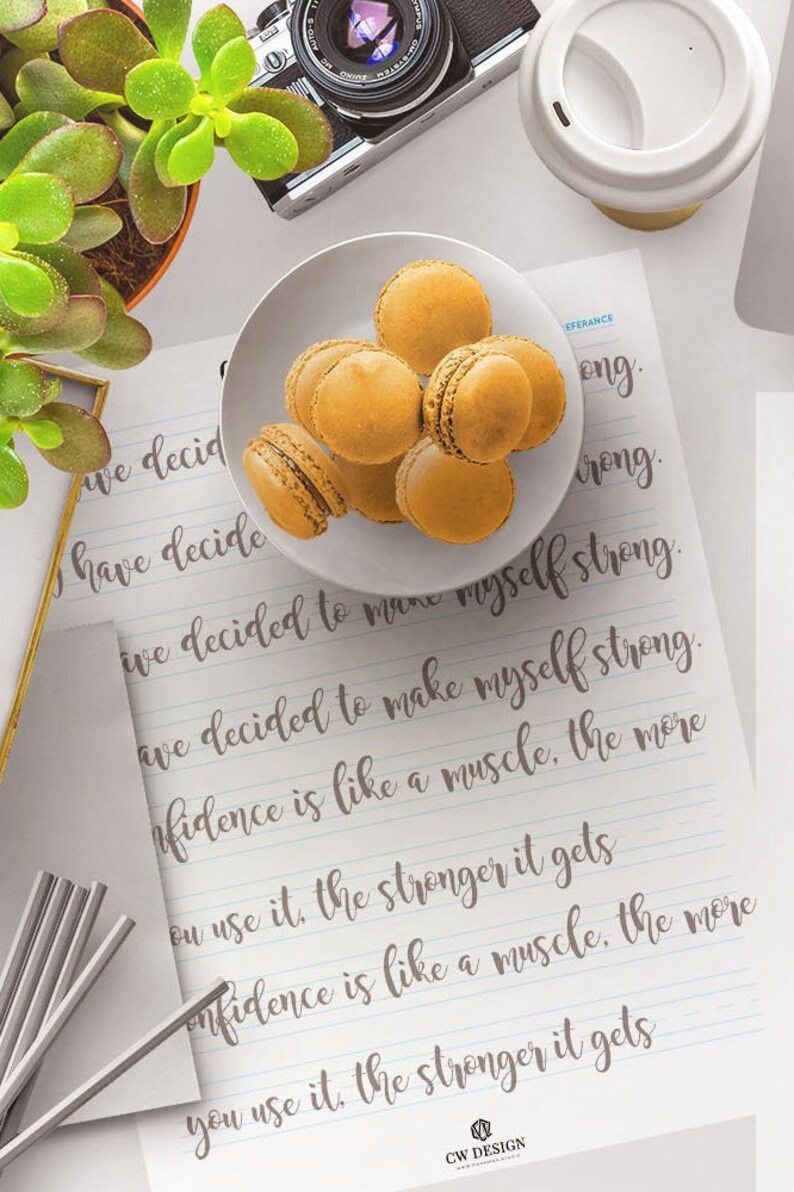 OLYMPUS OM-SYSTEM ZUIKO MC AUTO-S
EFERANCE
ave decid ong.
I have decide rong.
ave decided to make myself strong.
ave decided to make myself strong.
nfidence is like a muscle, the more
ou use it, the stronger it gets
onfidence is like a muscle, the more
you use it, the stronger it gets
CW DESIGN